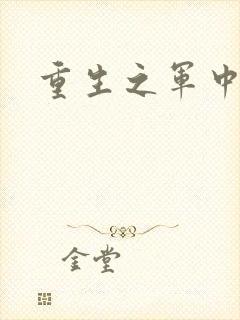 重生之军中
金堂